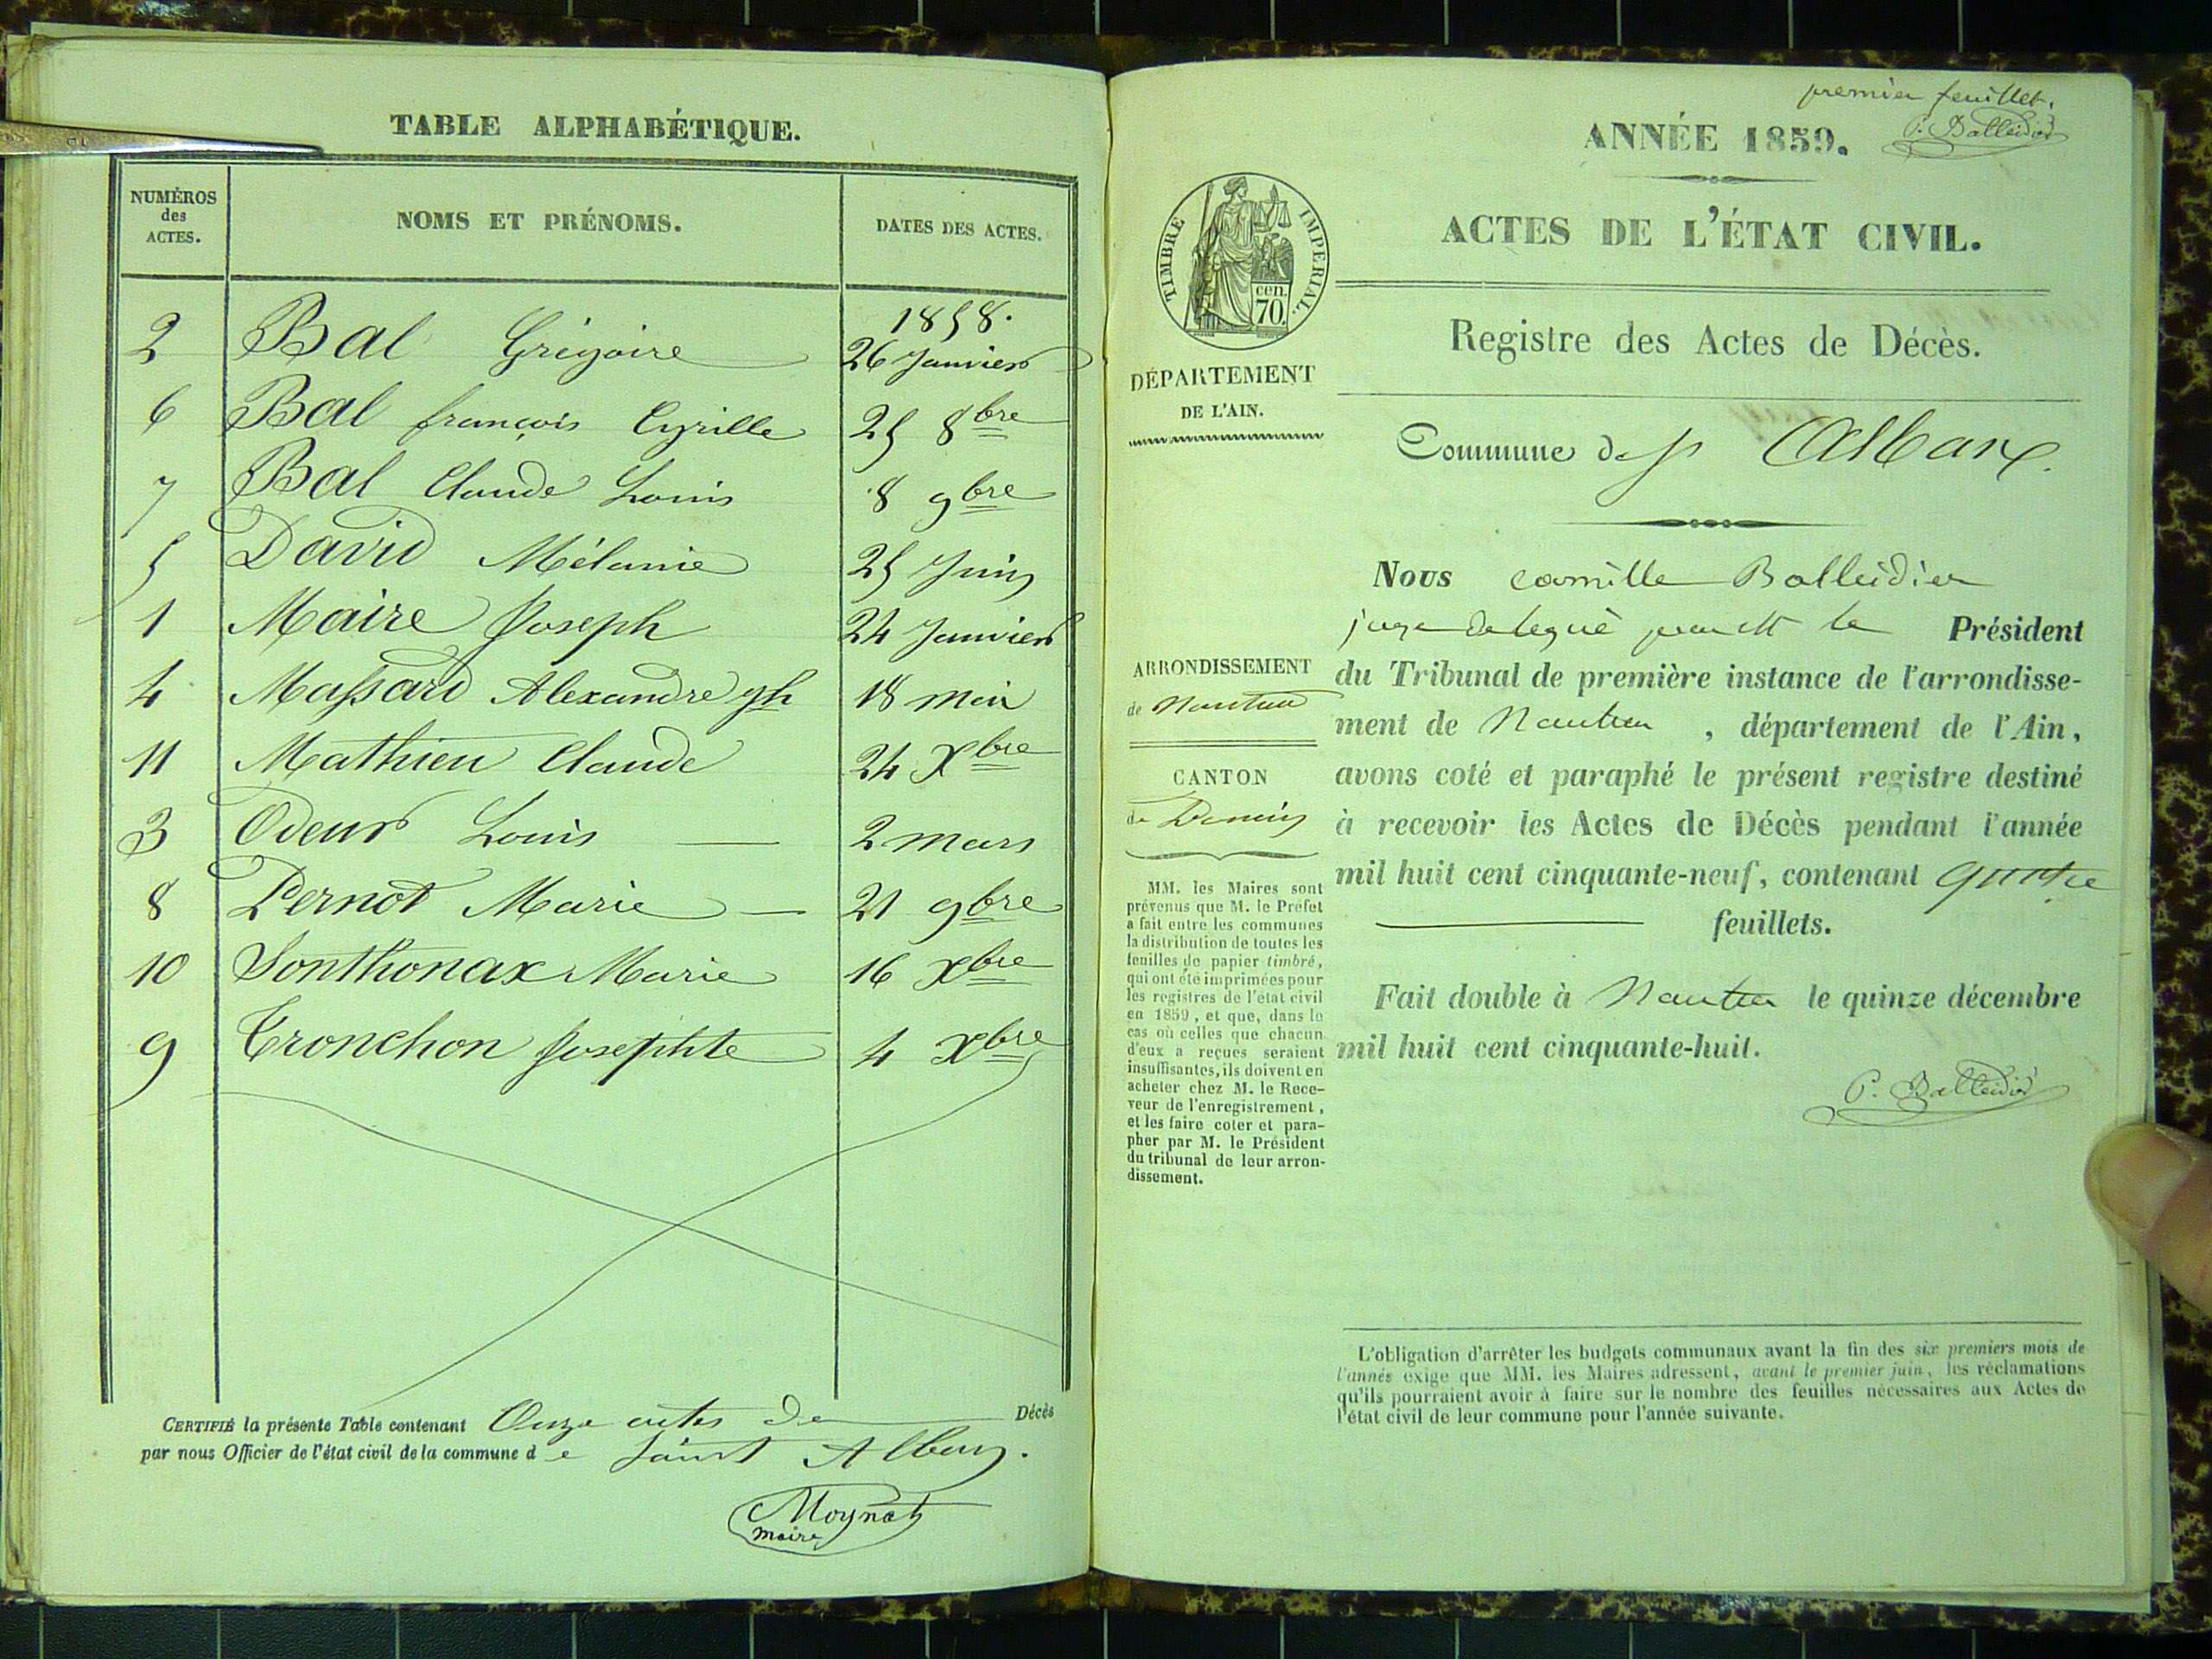 TABLE ALPHABÉTIQUE.
NUMÉROS
des
ACTES.
NOMS ET PRÉNOMS.
DATES DES ACTES.
1858.
2 Bal Grégoire 26 Janvier
6 Bal françois Cyrille 25 8bre
7 Bal Claude Louis 8 9bre
5 David Mélanie 25 Juin
1 Maire Joseph 24 Janvier
4 Massard Alexandre jh 18 mai
11 Mathieu Claude 24 Xbre
3 Odeur Louis 2 mars
8 Pernot Marie 21 9bre
10 Sonthonax Marie 16 Xbre
9 Tronchon Josephte 4 Xbre
CERTIFIÉ la présente Table contenant Onze actes de Décès
par nous Officier de l'état civil de la commune d e Saint Alban.
Moynat
maire
premier feuillet.
C. Balleidier
ANNÉE 1859.
ACTES DE L'ÉTAT CIVIL.
TIMBRE IMPERIAL.
cen.
70.
Registre des Actes de Décès.
DÉPARTEMENT
DE L'AIN.
Commune de St Alban
Nous camille Balleidier
juge délegué par Mr le Président
du Tribunal de première instance de l'arrondisse-
ment de Nantua, département de l'Ain,
avons coté et paraphé le présent registre destiné
à recevoir les Actes de Décès pendant l'année
mil huit cent cinquante-neuf, contenant quatre
feuillets.
Fait double à Nantua le quinze décembre
mil huit cent cinquante-huit.
C. Balleidier
ARRONDISSEMENT
de Nantua
CANTON
de
MM. les Maires sont
prévenus que M. le Préfet
a fait entre les communes
la distribution de toutes les
feuilles de papier timbré,
qui ont été imprimées pour
les registres de l'état civil
en 1859, et que, dans le
cas où celles que chacun
d'eux a reçues seraient
insuffisantes, ils doivent en
acheter chez M. le Rece-
veur de l'enregistrement,
et les faire coter et para-
pher par M. le Président
du tribunal de leur arron-
dissement.
L'obligation d'arrêter les budgets communaux avant la fin des six premiers mois de
l'année exige que MM. les Maires adressent, avant le premier juin, les réclamations
qu'ils pourraient avoir à faire sur le nombre des feuilles nécessaires aux Actes de
l'état civil de leur commune pour l'année suivante.